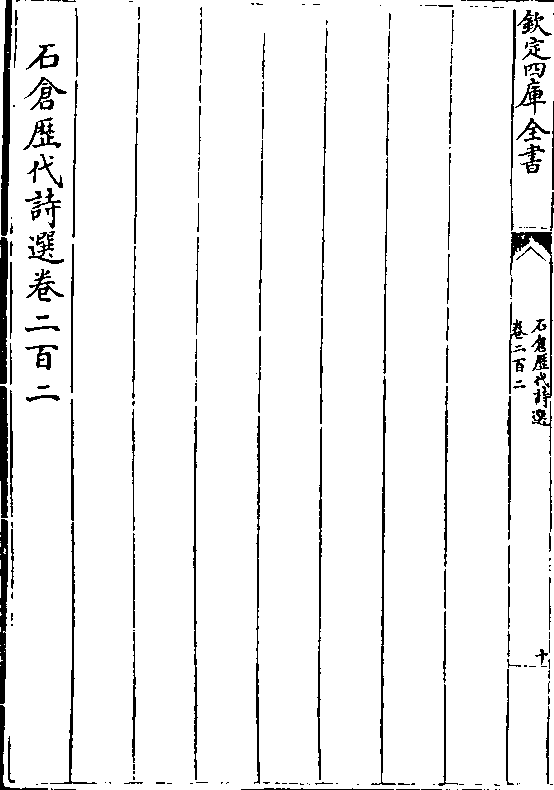 欽定四庫全書
石倉歷代詩選
卷二百二
十
石倉歷代詩選卷二百二